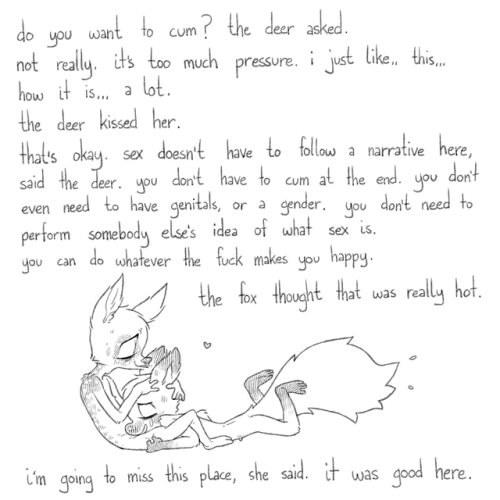 do you want to cum? the deer asked.
not really. it's too much pressure. i just like.. this...
how it is... a lot.
the deer kissed her.
that's okay. sex doesn't have to follow a narrative here,
said the deer. you don't have to cum at the end. you don't
even need to have genitals, or a gender. you don't need to
perform somebody else's idea of what sex is.
you can do whatever the fuck makes you happy.
the fox thought that was really hot.
i'm going to miss this place, she said. it was good here.